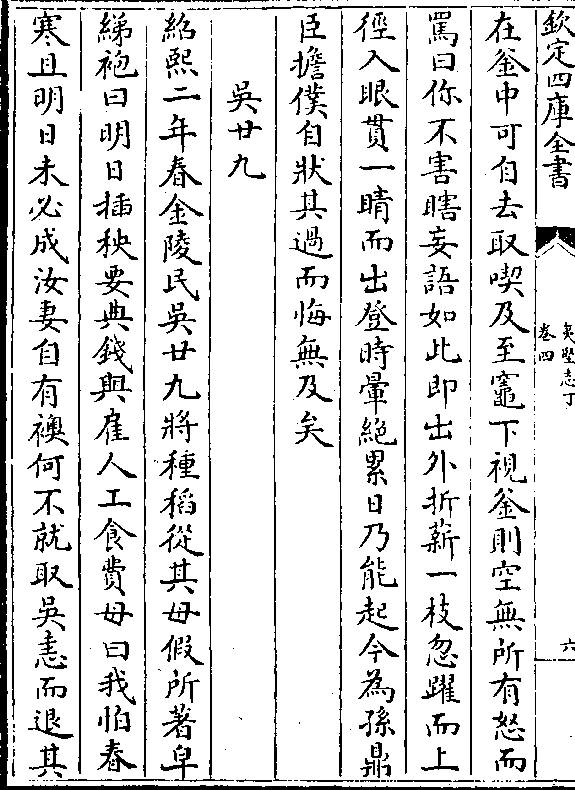 欽定四庫全書
夷堅志丁
卷四
六
在釜中可自去取喫及至竈下視釜則空無所有怒而
罵曰你不害瞎妄語如此即出外折薪一枝忽躍而上
徑入眼貫一睛而出登時暈絶累日乃能起今為孫鼎
臣擔僕自狀其過而悔無及矣
吳廿九
紹熙二年春金陵民吳廿九將種稻從其母假所著皁
綈袍曰明日插秧要典錢與雇人工食費母曰我怕春
寒且明日未必成汝妻自有襖何不就取吳恚而退其